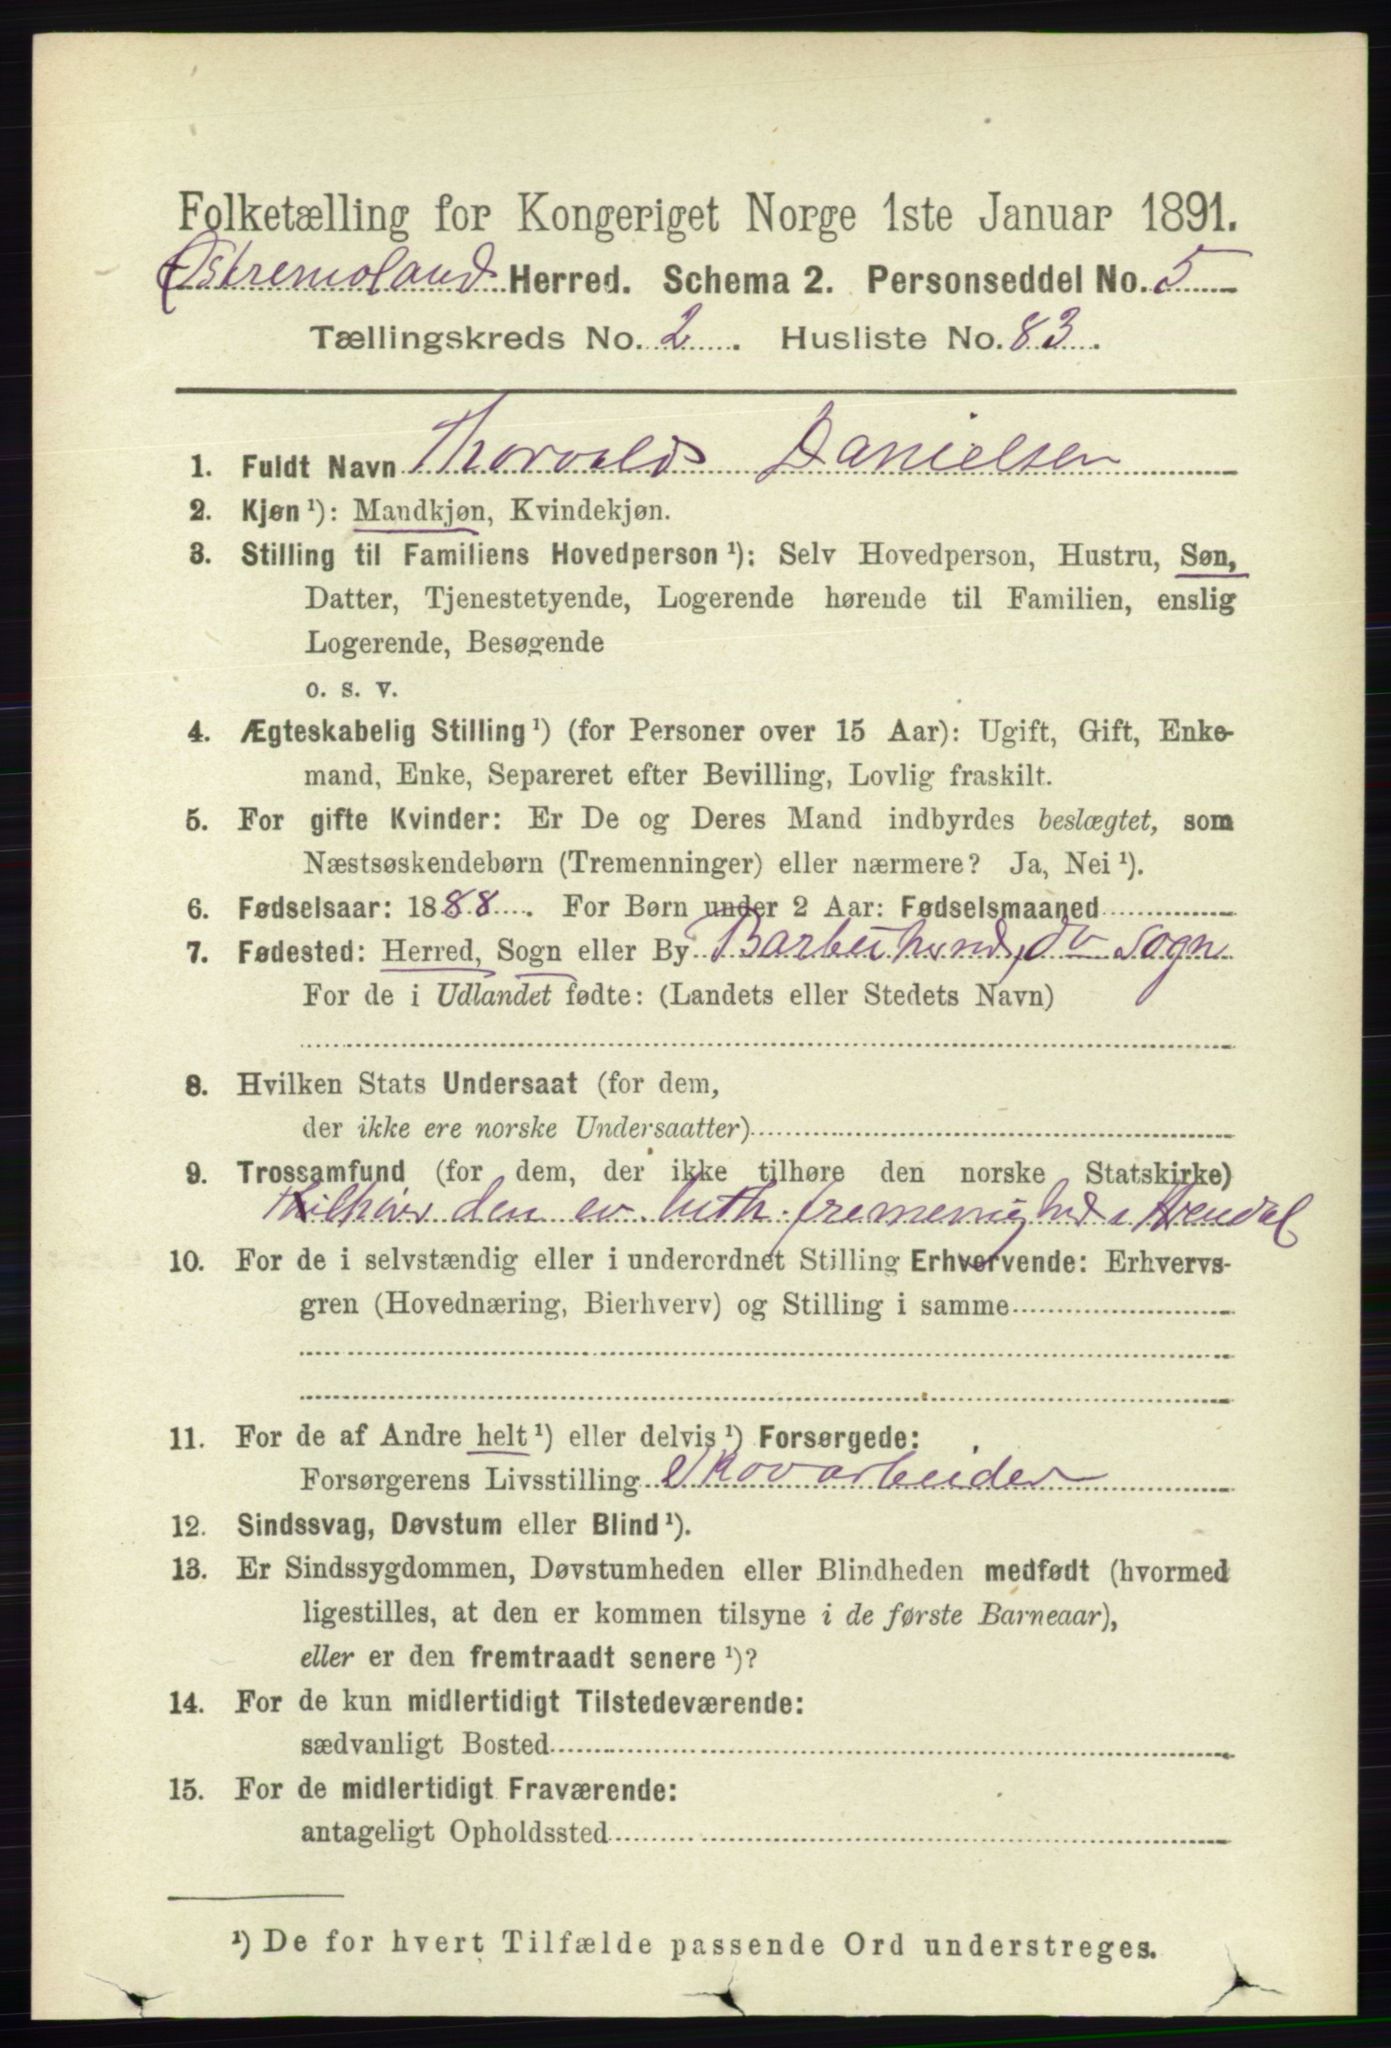 Folketælling for Kongeriget Norge 1ste Januar 1891.
Østremoland Herred. Schema 2. Personseddel No. 5
Tællingskreds No. 2. Husliste No. 83.
1. Fuldt Navn Thorvald Danielsen
2. Kjøn ¹): Mandkjøn, Kvindekjøn.
3. Stilling til Familiens Hovedperson ¹): Selv Hovedperson, Hustru, Søn,
Datter, Tjenestetyende, Logerende hørende til Familien, enslig
Logerende, Besøgende
o. s. v.
4. Ægteskabelig Stilling ¹) (for Personer over 15 Aar): Ugift, Gift, Enke-
mand, Enke, Separeret efter Bevilling, Lovlig fraskilt.
5. For gifte Kvinder: Er De og Deres Mand indbyrdes beslægtet, som
Næstsøskendebørn (Tremenninger) eller nærmere? Ja, Nei ¹).
6. Fødselsaar: 1888. For Børn under 2 Aar: Fødselsmaaned
7. Fødested: Herred, Sogn eller By Barbu herred, do sogn
For de i Udlandet fødte: (Landets eller Stedets Navn)
8. Hvilken Stats Undersaat (for dem,
der ikke ere norske Undersaatter)
9. Trossamfund (for dem, der ikke tilhøre den norske Statskirke)
Tilhører den ev. luth. fremenighed i Arendal
10. For de i selvstændig eller i underordnet Stilling Erhvervende: Erhvervs-
gren (Hovednæring, Bierhverv) og Stilling i samme
11. For de af Andre helt ¹) eller delvis ¹) Forsørgede:
Forsørgerens Livsstilling Skovarbeider
12. Sindssvag, Døvstum eller Blind ¹).
13. Er Sindssygdommen, Døvstumheden eller Blindheden medfødt (hvormed
ligestilles, at den er kommen tilsyne i de første Barneaar),
eller er den fremtraadt senere ¹)?
14. For de kun midlertidigt Tilstedeværende:
sædvanligt Bosted
15. For de midlertidigt Fraværende:
antageligt Opholdssted
¹) De for hvert Tilfælde passende Ord understreges.